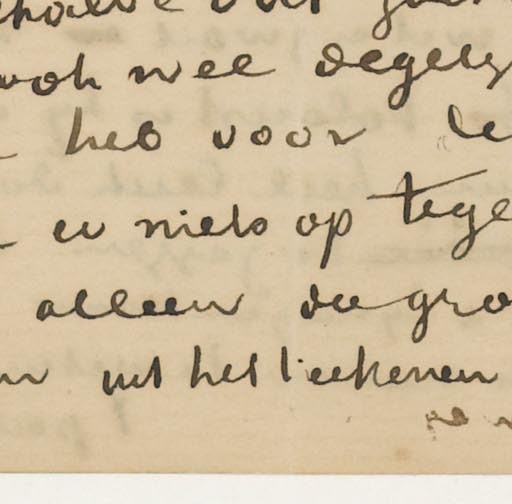 wel degely
heb voor de
er niets op tege
alleen die gro
met het teekenen